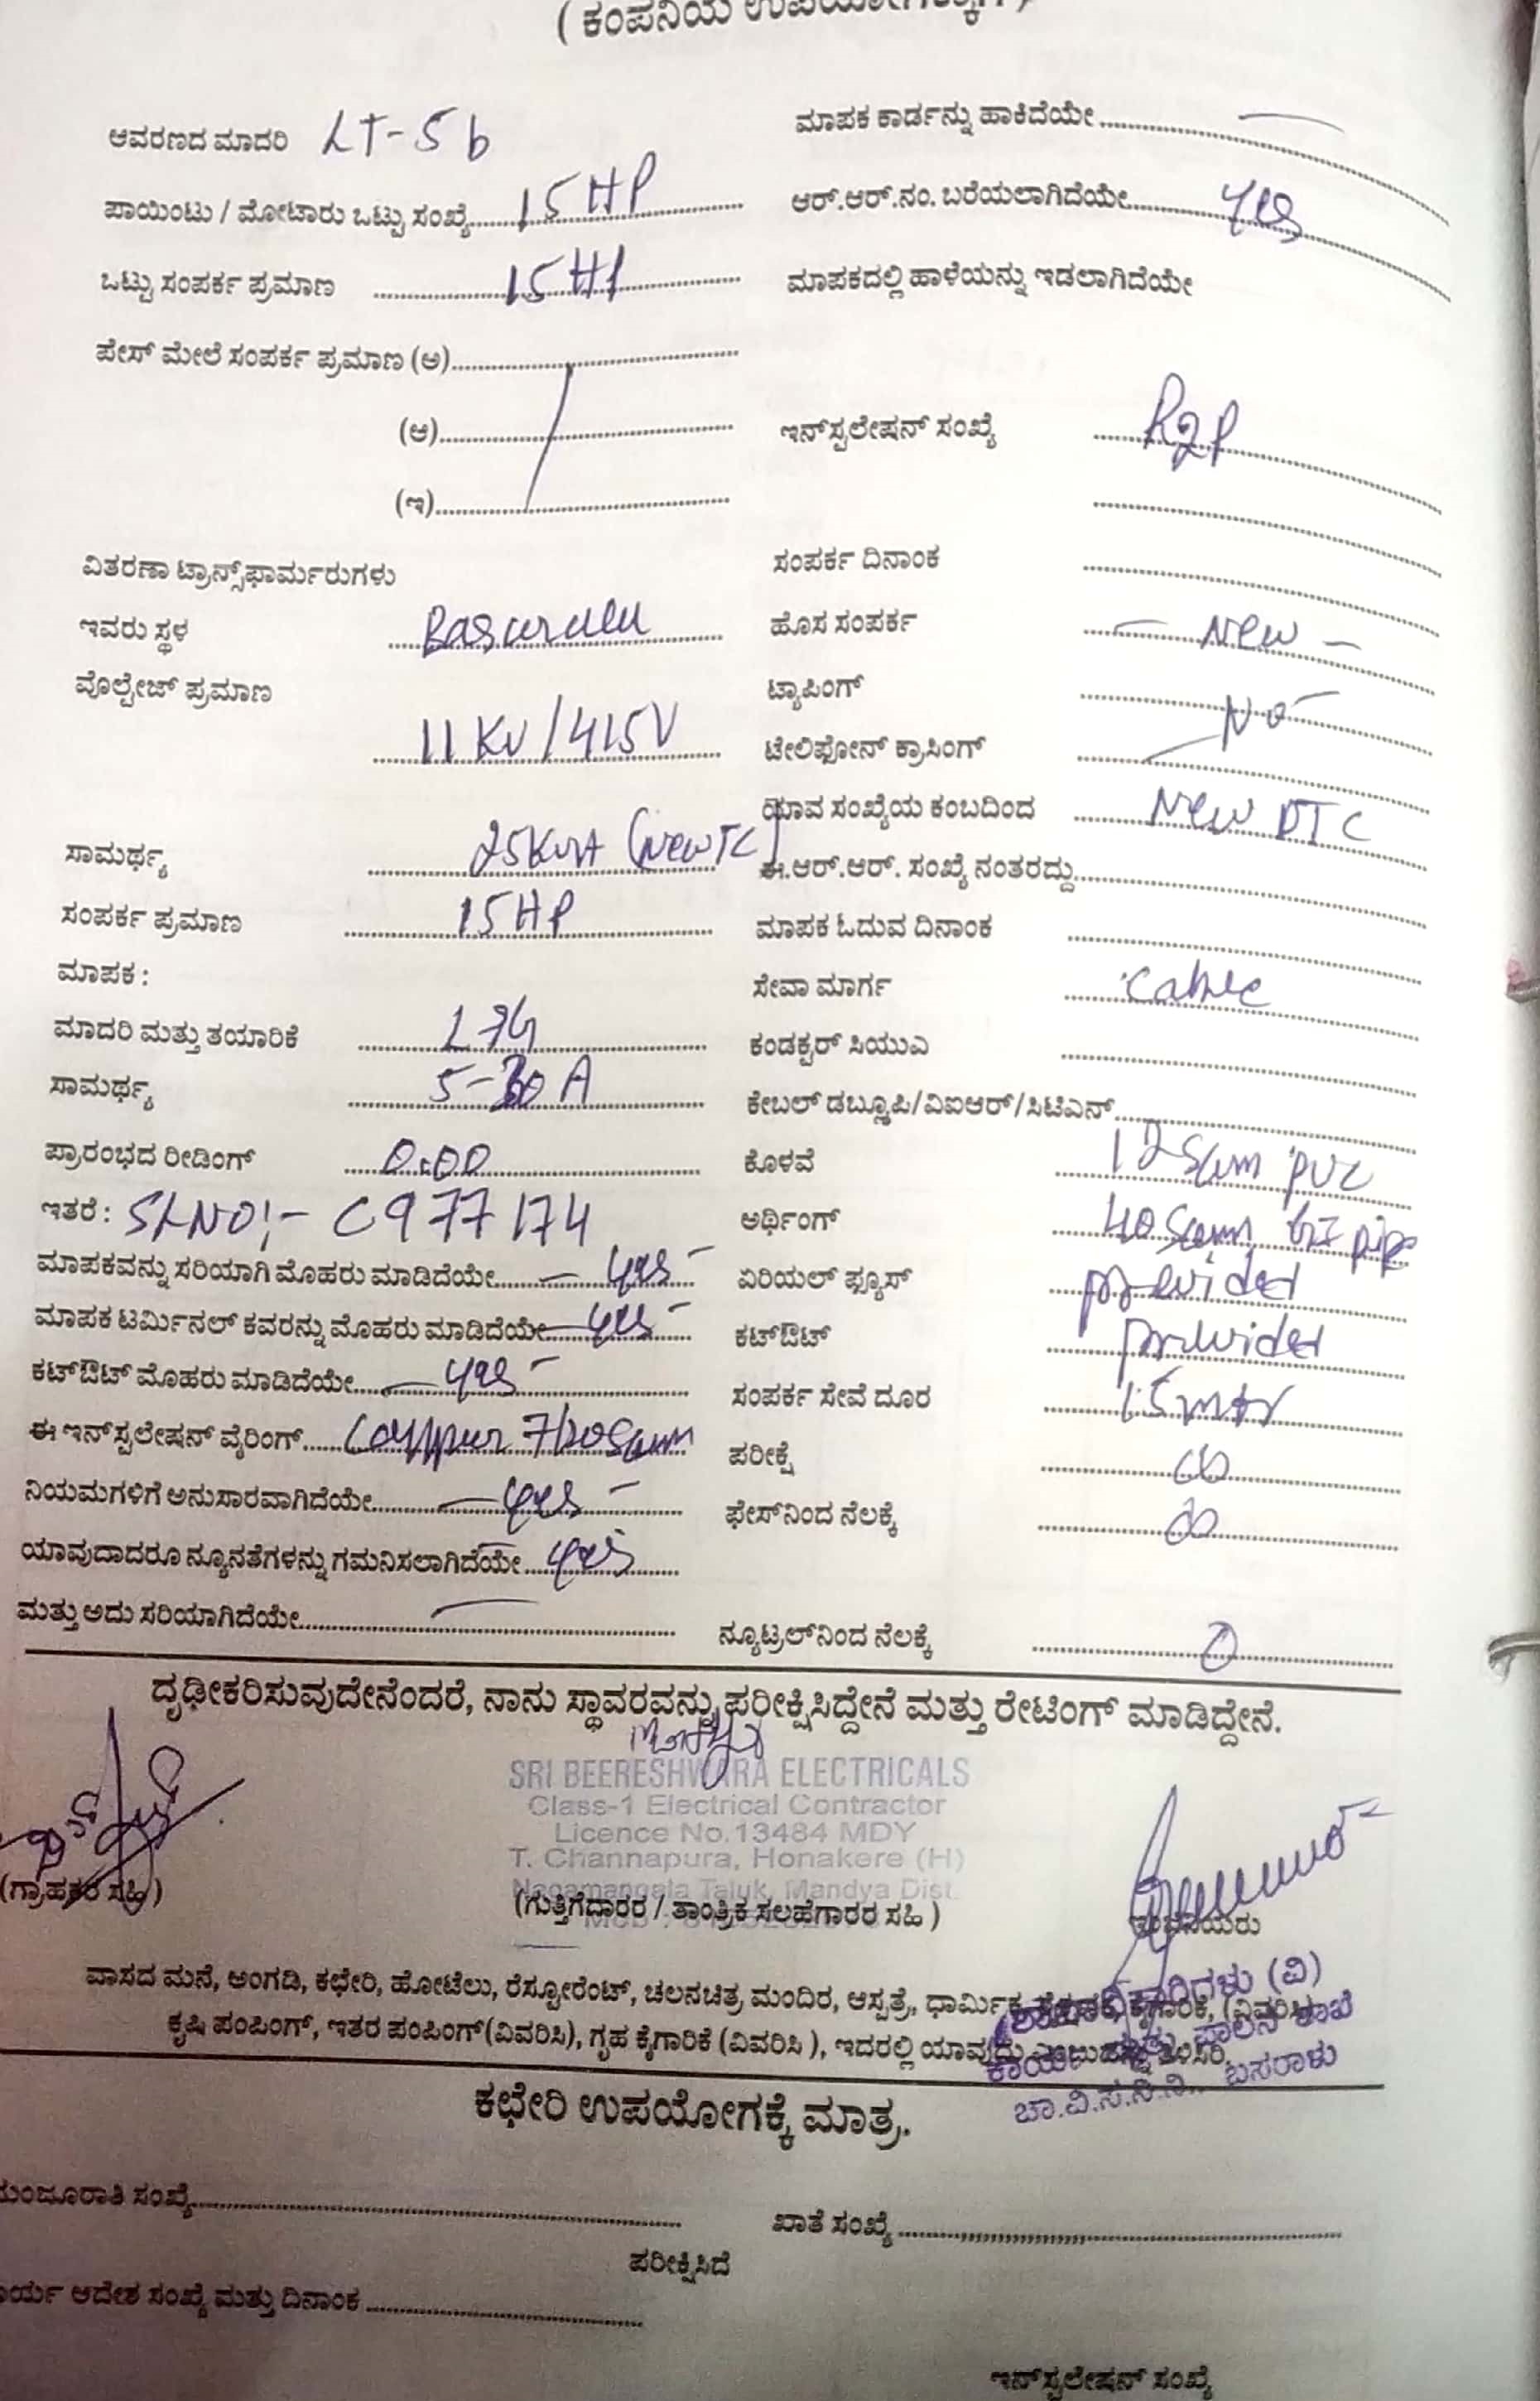 ( ಕಂಪನಿಯ ಉಪಯೋಗಕ್ಕಾಗಿ )
ಆವರಣದ ಮಾದರಿ LT-5b
ಮಾಪಕ ಕಾರ್ಡನ್ನು ಹಾಕಿದೆಯೇ
ಪಾಯಿಂಟು / ಮೋಟಾರು ಒಟ್ಟು ಸಂಖ್ಯೆ 15 HP
ಆರ್.ಆರ್.ನಂ. ಬರೆಯಲಾಗಿದೆಯೇ yes
ಒಟ್ಟು ಸಂಪರ್ಕ ಪ್ರಮಾಣ 15 HP
ಮಾಪಕದಲ್ಲಿ ಹಾಳೆಯನ್ನು ಇಡಲಾಗಿದೆಯೇ
ಪೇಸ್ ಮೇಲೆ ಸಂಪರ್ಕ ಪ್ರಮಾಣ (ಅ)
(ಆ)
ಇನ್‌ಸ್ಟಲೇಷನ್ ಸಂಖ್ಯೆ
(ಇ)
ವಿತರಣಾ ಟ್ರಾನ್ಸ್‌ಫಾರ್ಮರುಗಳು
ಸಂಪರ್ಕ ದಿನಾಂಕ
ಇವರು ಸ್ಥಳ Basaralu
ಹೊಸ ಸಂಪರ್ಕ - New -
ವೊಲ್ಟೇಜ್ ಪ್ರಮಾಣ 11 KV / 415V
ಟ್ಯಾಪಿಂಗ್ No
ಟೇಲಿಫೋನ್ ಕ್ರಾಸಿಂಗ್
ಯಾವ ಸಂಖ್ಯೆಯ ಕಂಬದಿಂದ New DTC
ಸಾಮರ್ಥ್ಯ 25KVA (New TC)
ಈ.ಆರ್.ಆರ್. ಸಂಖ್ಯೆ ನಂತರದ್ದು
ಸಂಪರ್ಕ ಪ್ರಮಾಣ 15 HP
ಮಾಪಕ ಓದುವ ದಿನಾಂಕ
ಮಾಪಕ :
ಸೇವಾ ಮಾರ್ಗ Cable
ಮಾದರಿ ಮತ್ತು ತಯಾರಿಕೆ
ಕಂಡಕ್ಟರ್ ಸಿಯುಎ
ಸಾಮರ್ಥ್ಯ 5-30 A
ಕೇಬಲ್ ಡಬ್ಲ್ಯೂಪಿ/ವಿಐಆರ್/ಸಿಟಿಎನ್
ಪ್ರಾರಂಭದ ರೀಡಿಂಗ್ 0.00
ಕೊಳವೆ PVC
ಇತರೆ : SL NO:- C977174
ಅರ್ಥಿಂಗ್ GI pipe
ಮಾಪಕವನ್ನು ಸರಿಯಾಗಿ ಮೊಹರು ಮಾಡಿದೆಯೇ - yes -
ಏರಿಯಲ್ ಫ್ಯೂಸ್ provided
ಮಾಪಕ ಟರ್ಮಿನಲ್ ಕವರನ್ನು ಮೊಹರು ಮಾಡಿದೆಯೇ - yes -
ಕಟ್‌ಔಟ್ provided
ಕಟ್‌ಔಟ್ ಮೊಹರು ಮಾಡಿದೆಯೇ - yes -
ಸಂಪರ್ಕ ಸೇವೆ ದೂರ 15 mtr
ಈ ಇನ್‌ಸ್ಟಲೇಷನ್ ವೈರಿಂಗ್
ಪರೀಕ್ಷೆ ∞
ನಿಯಮಗಳಿಗೆ ಅನುಸಾರವಾಗಿದೆಯೇ - yes -
ಫೇಸ್‌ನಿಂದ ನೆಲಕ್ಕೆ ∞
ಯಾವುದಾದರೂ ನ್ಯೂನತೆಗಳನ್ನು ಗಮನಿಸಲಾಗಿದೆಯೇ yes
ಮತ್ತು ಅದು ಸರಿಯಾಗಿದೆಯೇ
ನ್ಯೂಟ್ರಲ್‌ನಿಂದ ನೆಲಕ್ಕೆ 0
ದೃಢೀಕರಿಸುವುದೇನೆಂದರೆ, ನಾನು ಸ್ಥಾವರವನ್ನು ಪರೀಕ್ಷಿಸಿದ್ದೇನೆ ಮತ್ತು ರೇಟಿಂಗ್ ಮಾಡಿದ್ದೇನೆ.
SRI BEERESHWARA ELECTRICALS
Class-1 Electrical Contractor
Licence No.13484 MDY
T. Channapura, Honakere (H)
Nagamangala Taluk, Mandya Dist.
(ಗ್ರಾಹಕರ ಸಹಿ)
(ಗುತ್ತಿಗೆದಾರರ / ತಾಂತ್ರಿಕ ಸಲಹೆಗಾರರ ಸಹಿ )
ಇಂಜಿನಿಯರು
ವಾಸದ ಮನೆ, ಅಂಗಡಿ, ಕಛೇರಿ, ಹೋಟೆಲು, ರೆಸ್ಟೋರೆಂಟ್, ಚಲನಚಿತ್ರ ಮಂದಿರ, ಆಸ್ಪತ್ರೆ, ಧಾರ್ಮಿಕ, ಕೈಗಾರಿಕೆ, (ವಿವರಿಸಿ)
ಕೃಷಿ ಪಂಪಿಂಗ್, ಇತರ ಪಂಪಿಂಗ್(ವಿವರಿಸಿ), ಗೃಹ ಕೈಗಾರಿಕೆ (ವಿವರಿಸಿ ), ಇದರಲ್ಲಿ ಯಾವುದು ಎಂಬುದನ್ನು ತಿಳಿಸಿರಿ.
(ವಿ)
ಪಾಲನ ಶಾಖೆ
ಚಾ.ವಿ.ಸ.ನಿ.ನಿ., ಬಸರಾಳು
ಕಛೇರಿ ಉಪಯೋಗಕ್ಕೆ ಮಾತ್ರ.
ಮಂಜೂರಾತಿ ಸಂಖ್ಯೆ
ಖಾತೆ ಸಂಖ್ಯೆ
ಪರೀಕ್ಷಿಸಿದೆ
ಕಾರ್ಯ ಆದೇಶ ಸಂಖ್ಯೆ ಮತ್ತು ದಿನಾಂಕ
ಇನ್‌ಸ್ಟಲೇಷನ್ ಸಂಖ್ಯೆ